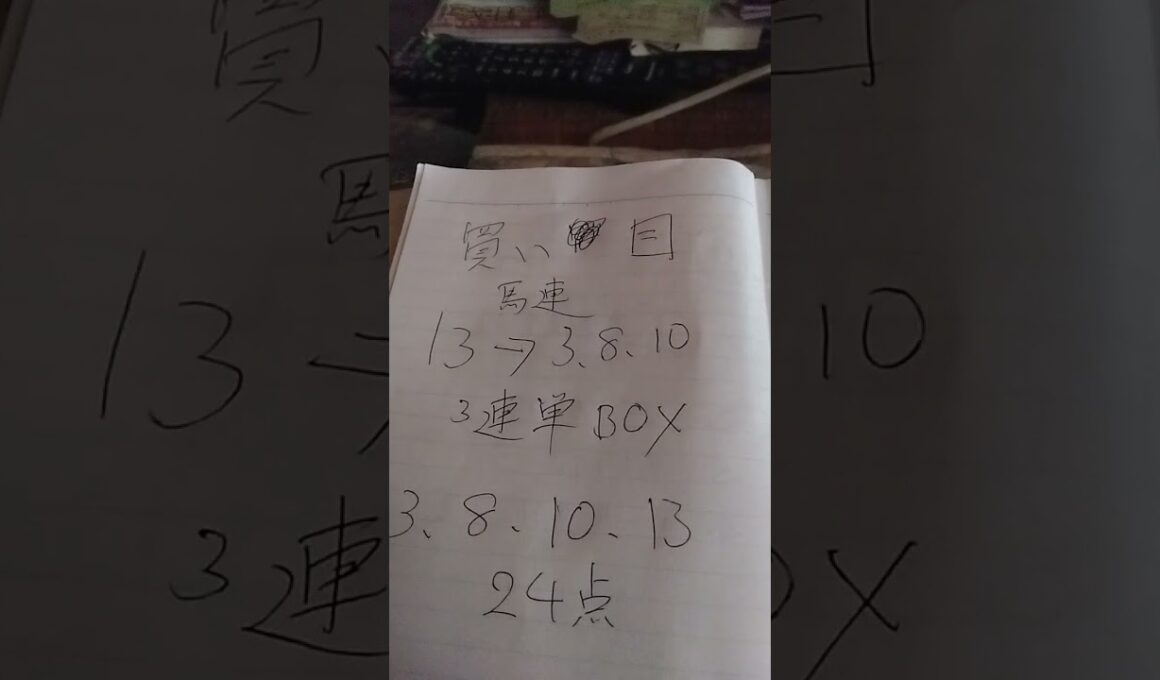 買い目
馬連
13→3、8、10
3連単BOX
3、8、10、13
24点